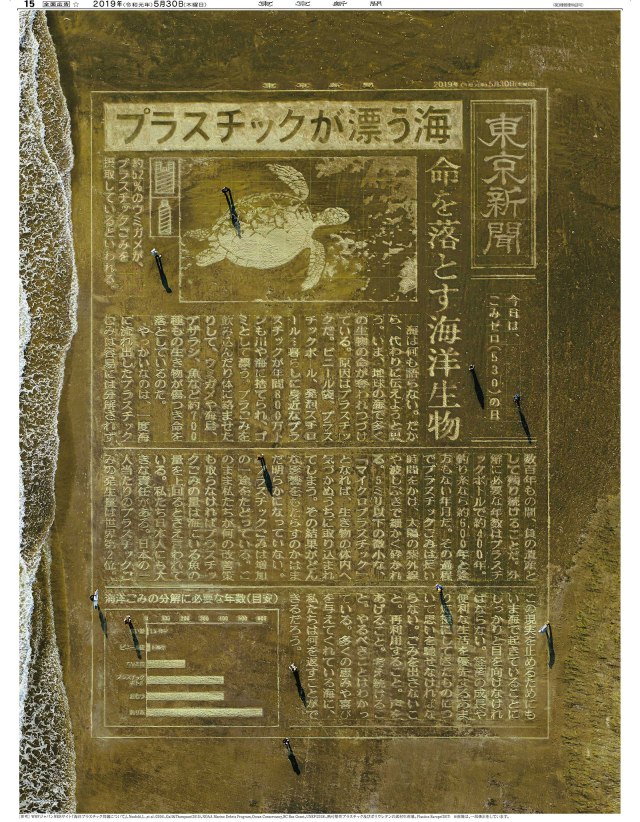 15 全面広告 ☆ 2019年(令和元年)5月30日(木曜日) 東京新聞
東京新聞 2019年(令和元年)5月30日(木曜日)
東京新聞
今日は、
ごみゼロ(530)の日
プラスチックが漂う海
命を落とす海洋生物
約52%のウミガメが、
プラスチックごみを
摂取しているといわれる。
海は何も語らない。だか
ら、代わりに伝えようと思
う。いま、地球の海で多く
の生物の命が奪われつづけ
ている。原因はプラスチッ
クだ。ビニール袋、プラス
チックボトル、発泡スチロ
ール…暮らしに身近なプラ
スチックが年間800万ト
ンも川や海に捨てられ、ゴ
ミとして漂う。プラごみを
飲み込んだり体に絡ませた
りして、ウミガメや海鳥、
アザラシ、魚など約700
種もの生き物が傷つき命を
落としているのだ。
やっかいなのは、一度海
に流れ出したプラスチック
ごみは容易には分解されず、
数百年もの間、負の遺産と
して残り続けることだ。分
解に必要な年数はプラスチ
ックボトルで約400年。
釣り糸なら約600年と途
方もない年月だ。その過程
でプラスチックごみは長い
時間をかけ、太陽の紫外線
や波しぶきで細かく砕かれ
る。5ミリ以下の微小な、
「マイクロプラスチック」
となれば、生き物の体内へ
気づかぬうちに取り込まれ
てしまう。その結果がどん
な影響をもたらすのかはま
だ明らかになっていない。
プラスチックごみは増加
の一途をたどっている。こ
のまま私たちが何の改善策
も取らなければプラスチッ
クごみの量は海にいる魚の
量を上回るとさえ言われて
いる。私たち日本人にも大
きな責任がある。日本の一
人当たりのプラスチックご
みの発生量は世界第2位。
この現実を止めるためにも
いま海で起きていることに
しっかりと目を向けなけれ
ばならない。企業の成長や
便利な生活を優先するあま
り犠牲にしてきたものにつ
いて思いを馳せなければな
らない。ごみを出さないこ
と。再利用すること。声を
あげること。考え続けるこ
と。やるべきことはわかっ
ている。多くの恵みや喜び
を与えてくれている海に、
私たちは何を返すことがで
きるだろう。
海洋ごみの分解に必要な年数(目安)
0 100 200 300 400 500 600
プラスチック
おむつ
釣り糸